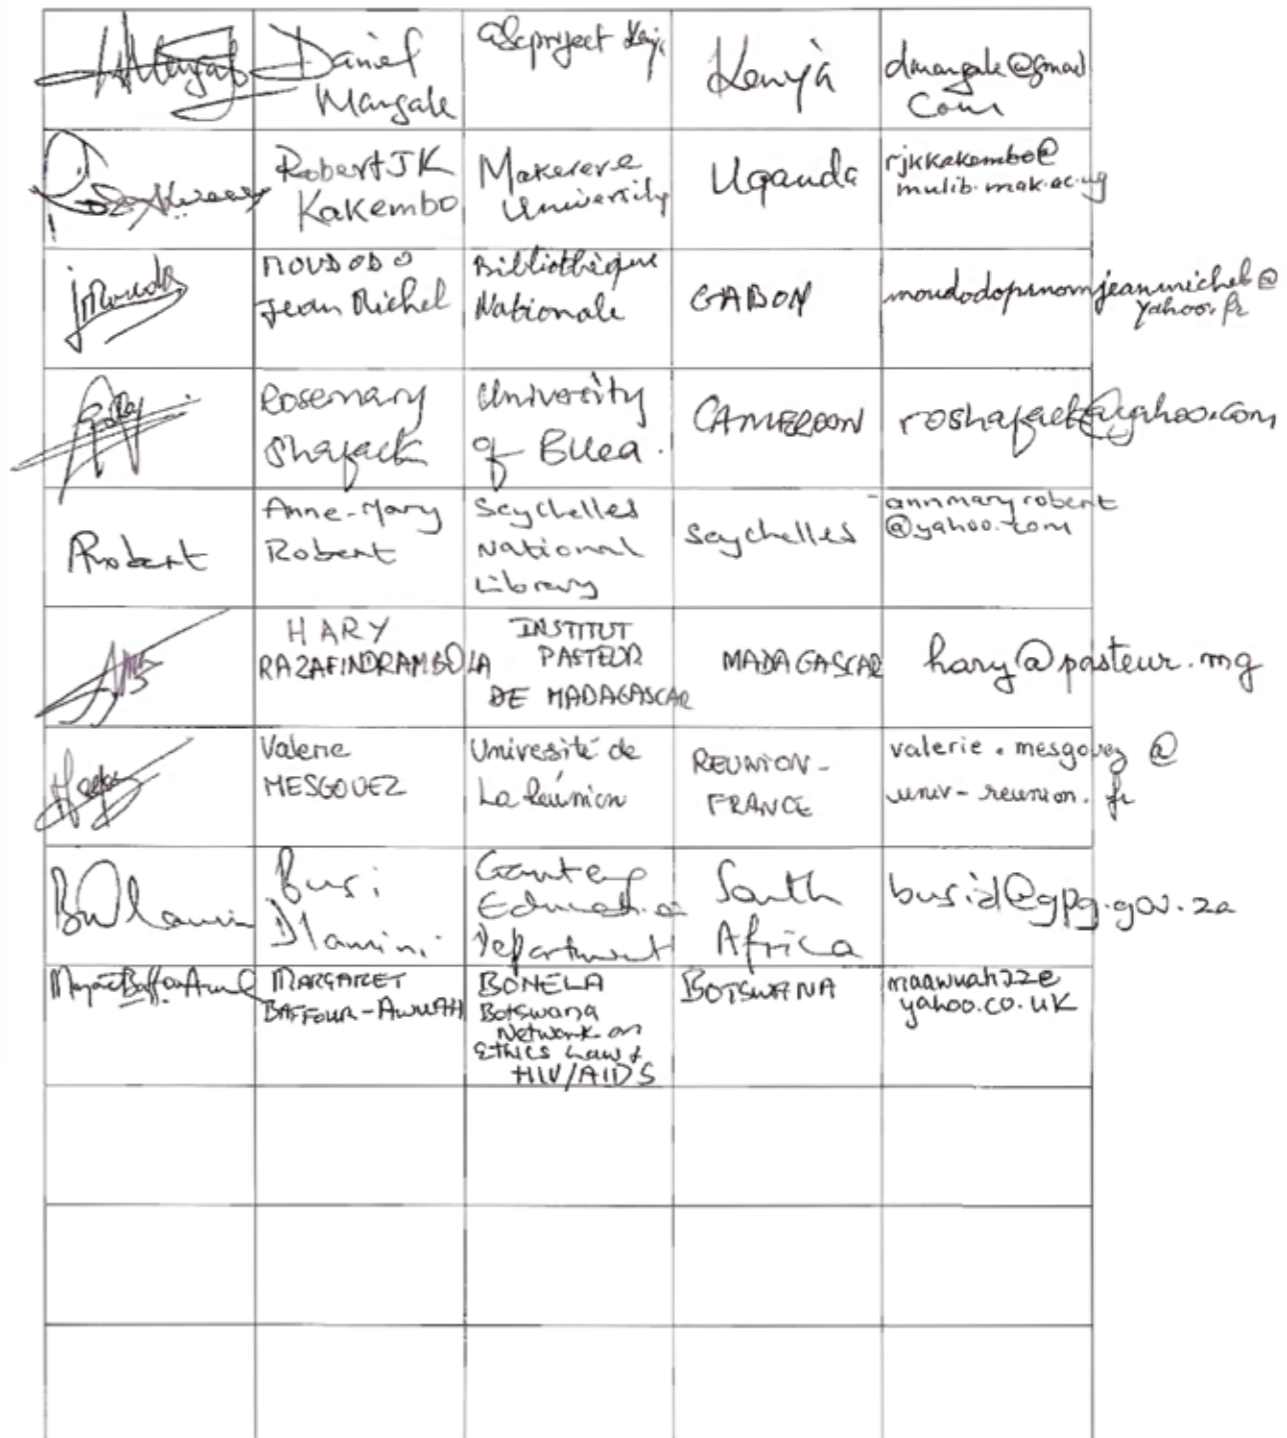 Daniel
Mangale
Kenya
Kenya
dmangale@gmail
Com
Robert JK
Kakembo
Makerere
University
Uganda
rjkkakembo@
mulib.mak.ac.ug
MOUDODO
Jean Michel
Bibliothèque
Nationale
GABON
moudodopsnomjeanmichel@
yahoo.fr
Rosemary
Shafack
University
of Buea.
CAMEROON
roshafack@yahoo.com
Robert
Anne-Mary
Robert
Seychelles
National
Library
Seychelles
annmaryrobert
@yahoo.com
HARY
RAZAFINDRAMBOLA
INSTITUT
PASTEUR
DE MADAGASCAR
MADAGASCAR
hary@pasteur.mg
Valerie
MESGOUEZ
Université de
La Réunion
REUNION-
FRANCE
valerie.mesgouez@
univ-reunion.fr
Busi
Dlamini
Gauteng
Education
Department
South
Africa
busid@gpg.gov.za
MARGARET
BAFFOUR-AWUAH
BONELA
Botswana
Network on
Ethics Law &
HIV/AIDS
BOTSWANA
yahoo.co.uk